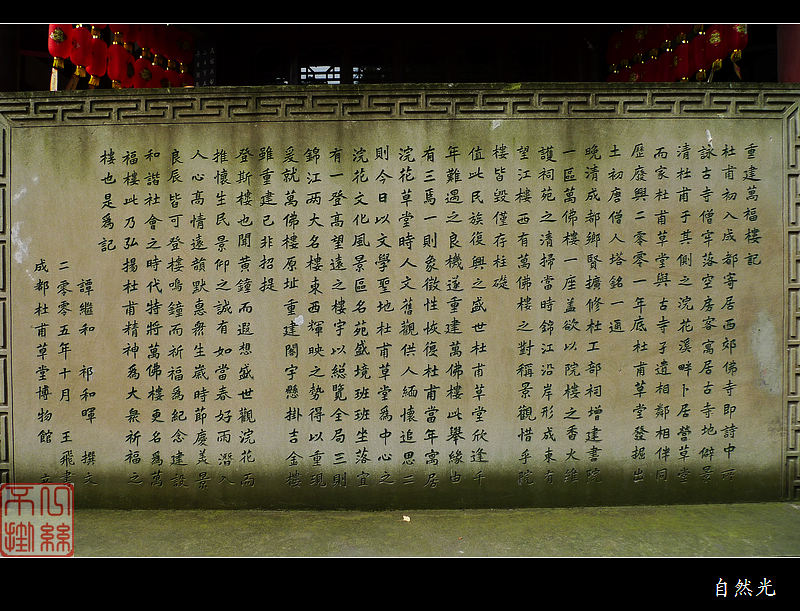 重建萬福樓記
杜甫初入成都寄居西郊佛寺即詩中所
詠古寺僧牢落空房客寓居古寺地僻景
清杜甫于其側之浣花溪畔卜居營草堂
而家杜甫草堂與古寺子遺相鄰相伴同
歷廢興二零零一年底杜甫草堂發掘出
土初唐僧人塔銘一通
晚清成都鄉賢擴修杜工部祠增建書院
一區萬佛樓一座蓋欲以院樓之香火維
護祠苑之清掃當時錦江沿岸形成東有
望江樓西有萬佛樓之對稱景觀惜乎院
樓皆毀僅存柱礎
值此民族復興之盛世杜甫草堂欣逢千
年難遇之良機遂重建萬佛樓此舉緣由
有三焉一則象徵性恢復杜甫當年寓居
浣花草堂時人文舊觀供人緬懷追思二
則今日以文學聖地杜甫草堂為中心之
浣花文化風景區名苑盛境班班坐落宜
有一登高望遠之樓宇以縂覽全局三則
錦江两大名樓東西輝映之勢得以重現
爰就萬佛樓原址重建閣宇懸掛古金樓
雖重建已非招提
登斯樓也聞黄鐘而遐想盛世觀浣花而
推懷生民景仰之誠有如當春好雨潛入
人心高情遠韻默惠衆生歲時節慶美景
良辰皆可登樓鳴鐘而祈福為紀念建設
和諧社會之時代特將萬佛樓更名為萬
福樓此乃弘揚杜甫精神為大衆祈福之
樓也是為記
譚繼和 祁和暉 撰文
二零零五年十月 王飛書
成都杜甫草堂博物館 立
自然光